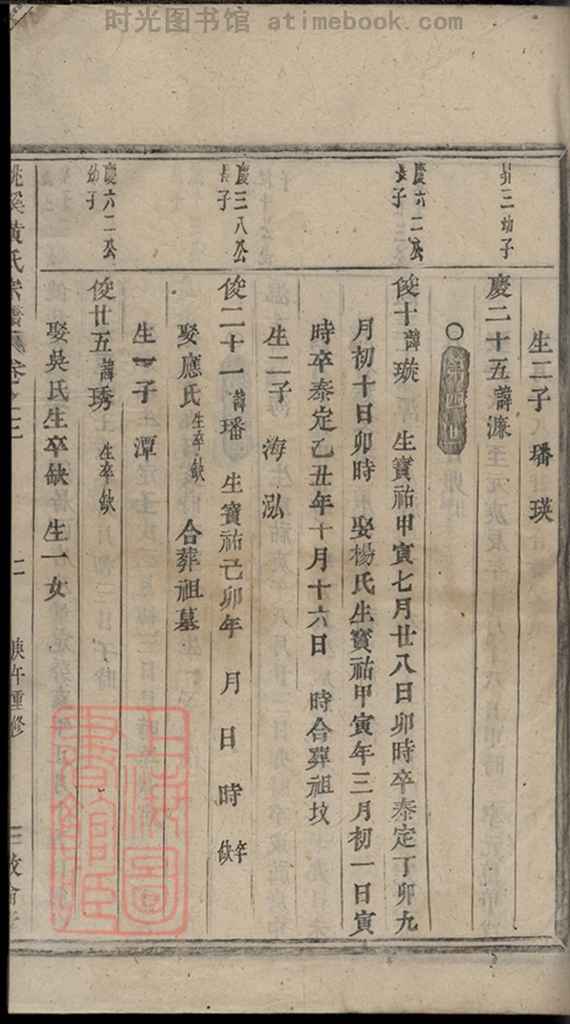 时光图书馆 atimebook.com
昇三幼子
生二子 璠 瑛
慶二十五諱濂
慶六二公
長子
俊十諱璇 生寳祐甲寅七月廿八日卯時卒泰定丁卯九
月初十日卯時 娶楊氏生寳祐甲寅年三月初一日寅
時卒泰定乙丑年十月十六日 時合葬祖坟
生二子 海 泓
慶三八公
長子
俊二十一諱璠 生寳祐己卯年 月 日 時 卒缺
娶應氏生卒缺 合葬祖墓
生一子 潭
慶六二公
幼子
俊廿五諱琇 生卒缺
娶吳氏生卒缺 生一女
黃氏宗譜 卷之三 二 庚午重修